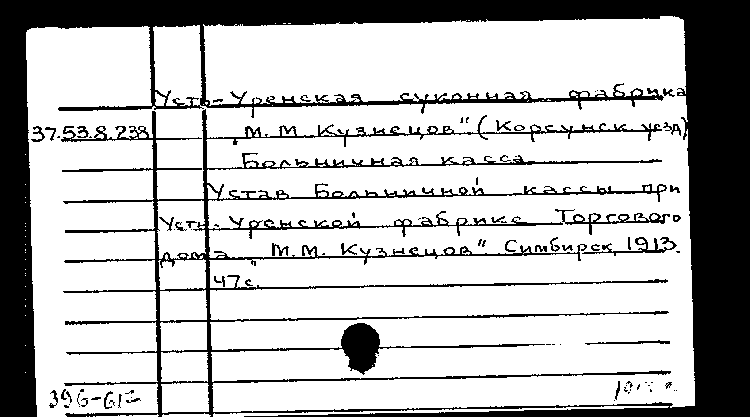 Усть-Уренская суконная фабрика
37.53.8.238 „М.М. Кузнецов" (Корсунск уезд)
Больничная касса
Устав Больничной кассы при
Усть-Уренской фабрике Торгового
дома „М.М. Кузнецов" Симбирск, 1913.
47с.
396-61